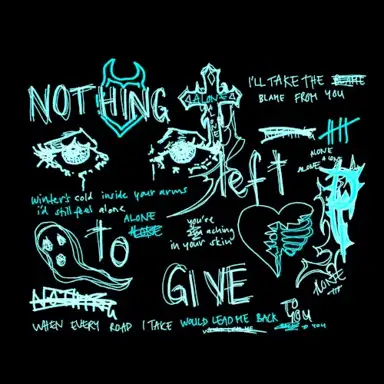 NOTHING
ALONE
I'LL TAKE THE BLAME
BLAME FROM YOU
left
ALONE
ALONE
winter's cold inside your arms
i'd still feel alone
ALONE
you're
aching
in your skin
to
GIVE
ALONE
NOTHING
TO
YOU
WHEN EVERY ROAD I TAKE WOULD LEAD ME BACK
TO YOU